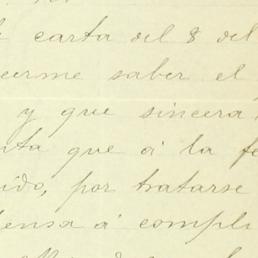 carta del 8 del
cerme saber el
y que sincera
ta que á la fe
ido, por tratarse
ensa á compli